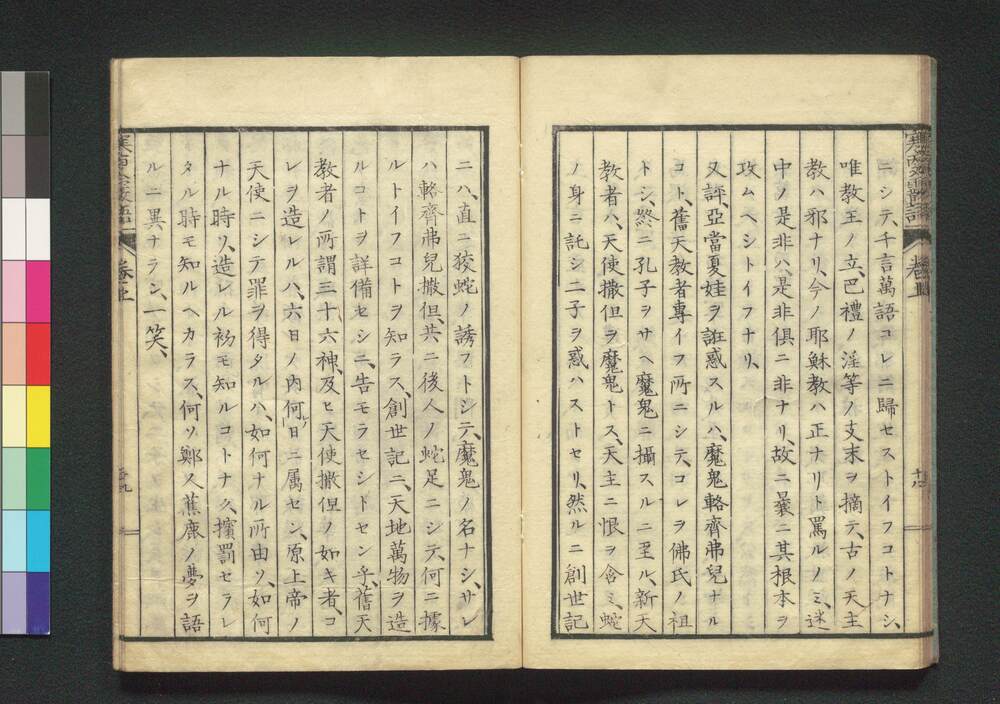 ニシテ、千言萬語コレニ歸セストイフコトナシ、
唯教王ノ立、巴禮ノ淫等ノ支末ヲ摘テ、古ノ天主
教ハ邪ナリ、今ノ耶穌教ハ正ナリト罵ルノミ、迷
中ノ是非ハ、是非俱ニ非ナリ、故ニ曩ニ其根本ヲ
攻ムヘシトイフナリ、
又評、亞當夏娃ヲ誑惑スルハ、魔鬼輅齊弗兒ナル
コト、舊天教者專イフ所ニシテ、コレヲ佛氏ノ祖
トシ、終ニ孔子ヲサヘ魔鬼ニ攝スルニ至ル、新天
教者ハ、天使撒但ヲ魔鬼トス、天主ニ恨ヲ含ミ、蛇
ノ身ニ託シ二子ヲ惑ハストセリ、然ルニ創世記
ニハ、直ニ狡蛇ノ誘フトシテ、魔鬼ノ名ナシ、サレ
ハ輅齊弗兒撒但、共ニ後人ノ蛇足ニシテ、何ニ據
ルトイフコトヲ知ラス、創世記ニ、天地萬物ヲ造
ルコトヲ詳備セシニ、告モラセシトセン乎、舊天
教者ノ所謂三十六神、及ヒ天使撒但ノ如キ者、コ
レヲ造レルハ、六日ノ内何ノ日ニ属セン、原上帝ノ
天使ニシテ罪ヲ得タルハ、如何ナル所由ソ、如何
ナル時ソ、造レル初モ知ルコトナク、擯罰セラレ
タル時モ知ルヘカラス、何ソ鄭人蕉鹿ノ夢ヲ語
ルニ異ナラン、一笑、
卷之